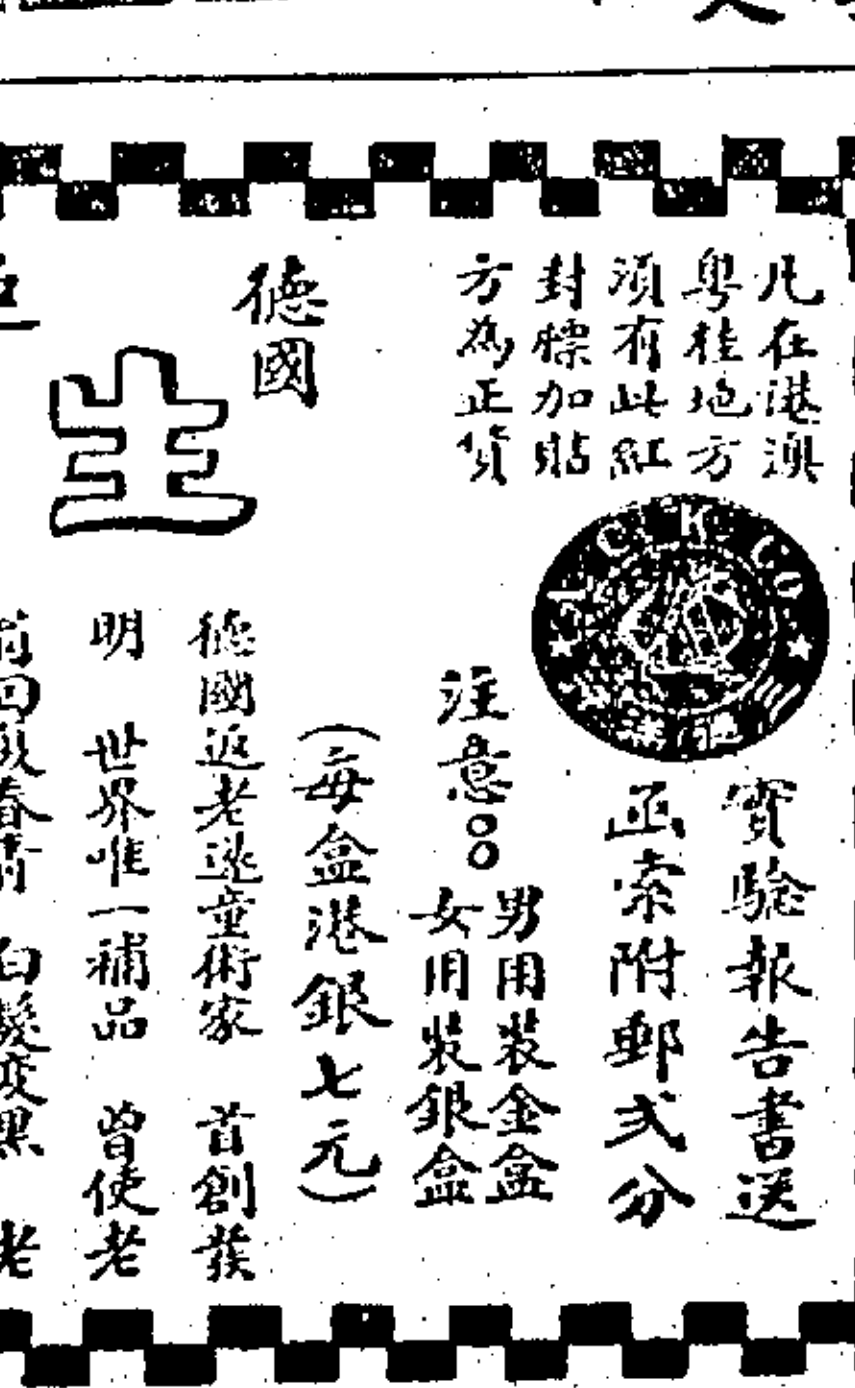 凡在港澳
粤桂地方
須有此紅
封標加貼
方為正貨
C K CO
實驗報告書送
函索附郵弍分
注意
男用裝金盒
女用裝銀盒
（每盒港銀七元）
德國
生
德國返老還童術家 首創發
明 世界唯一補品 曾使老
白髮變黑 老